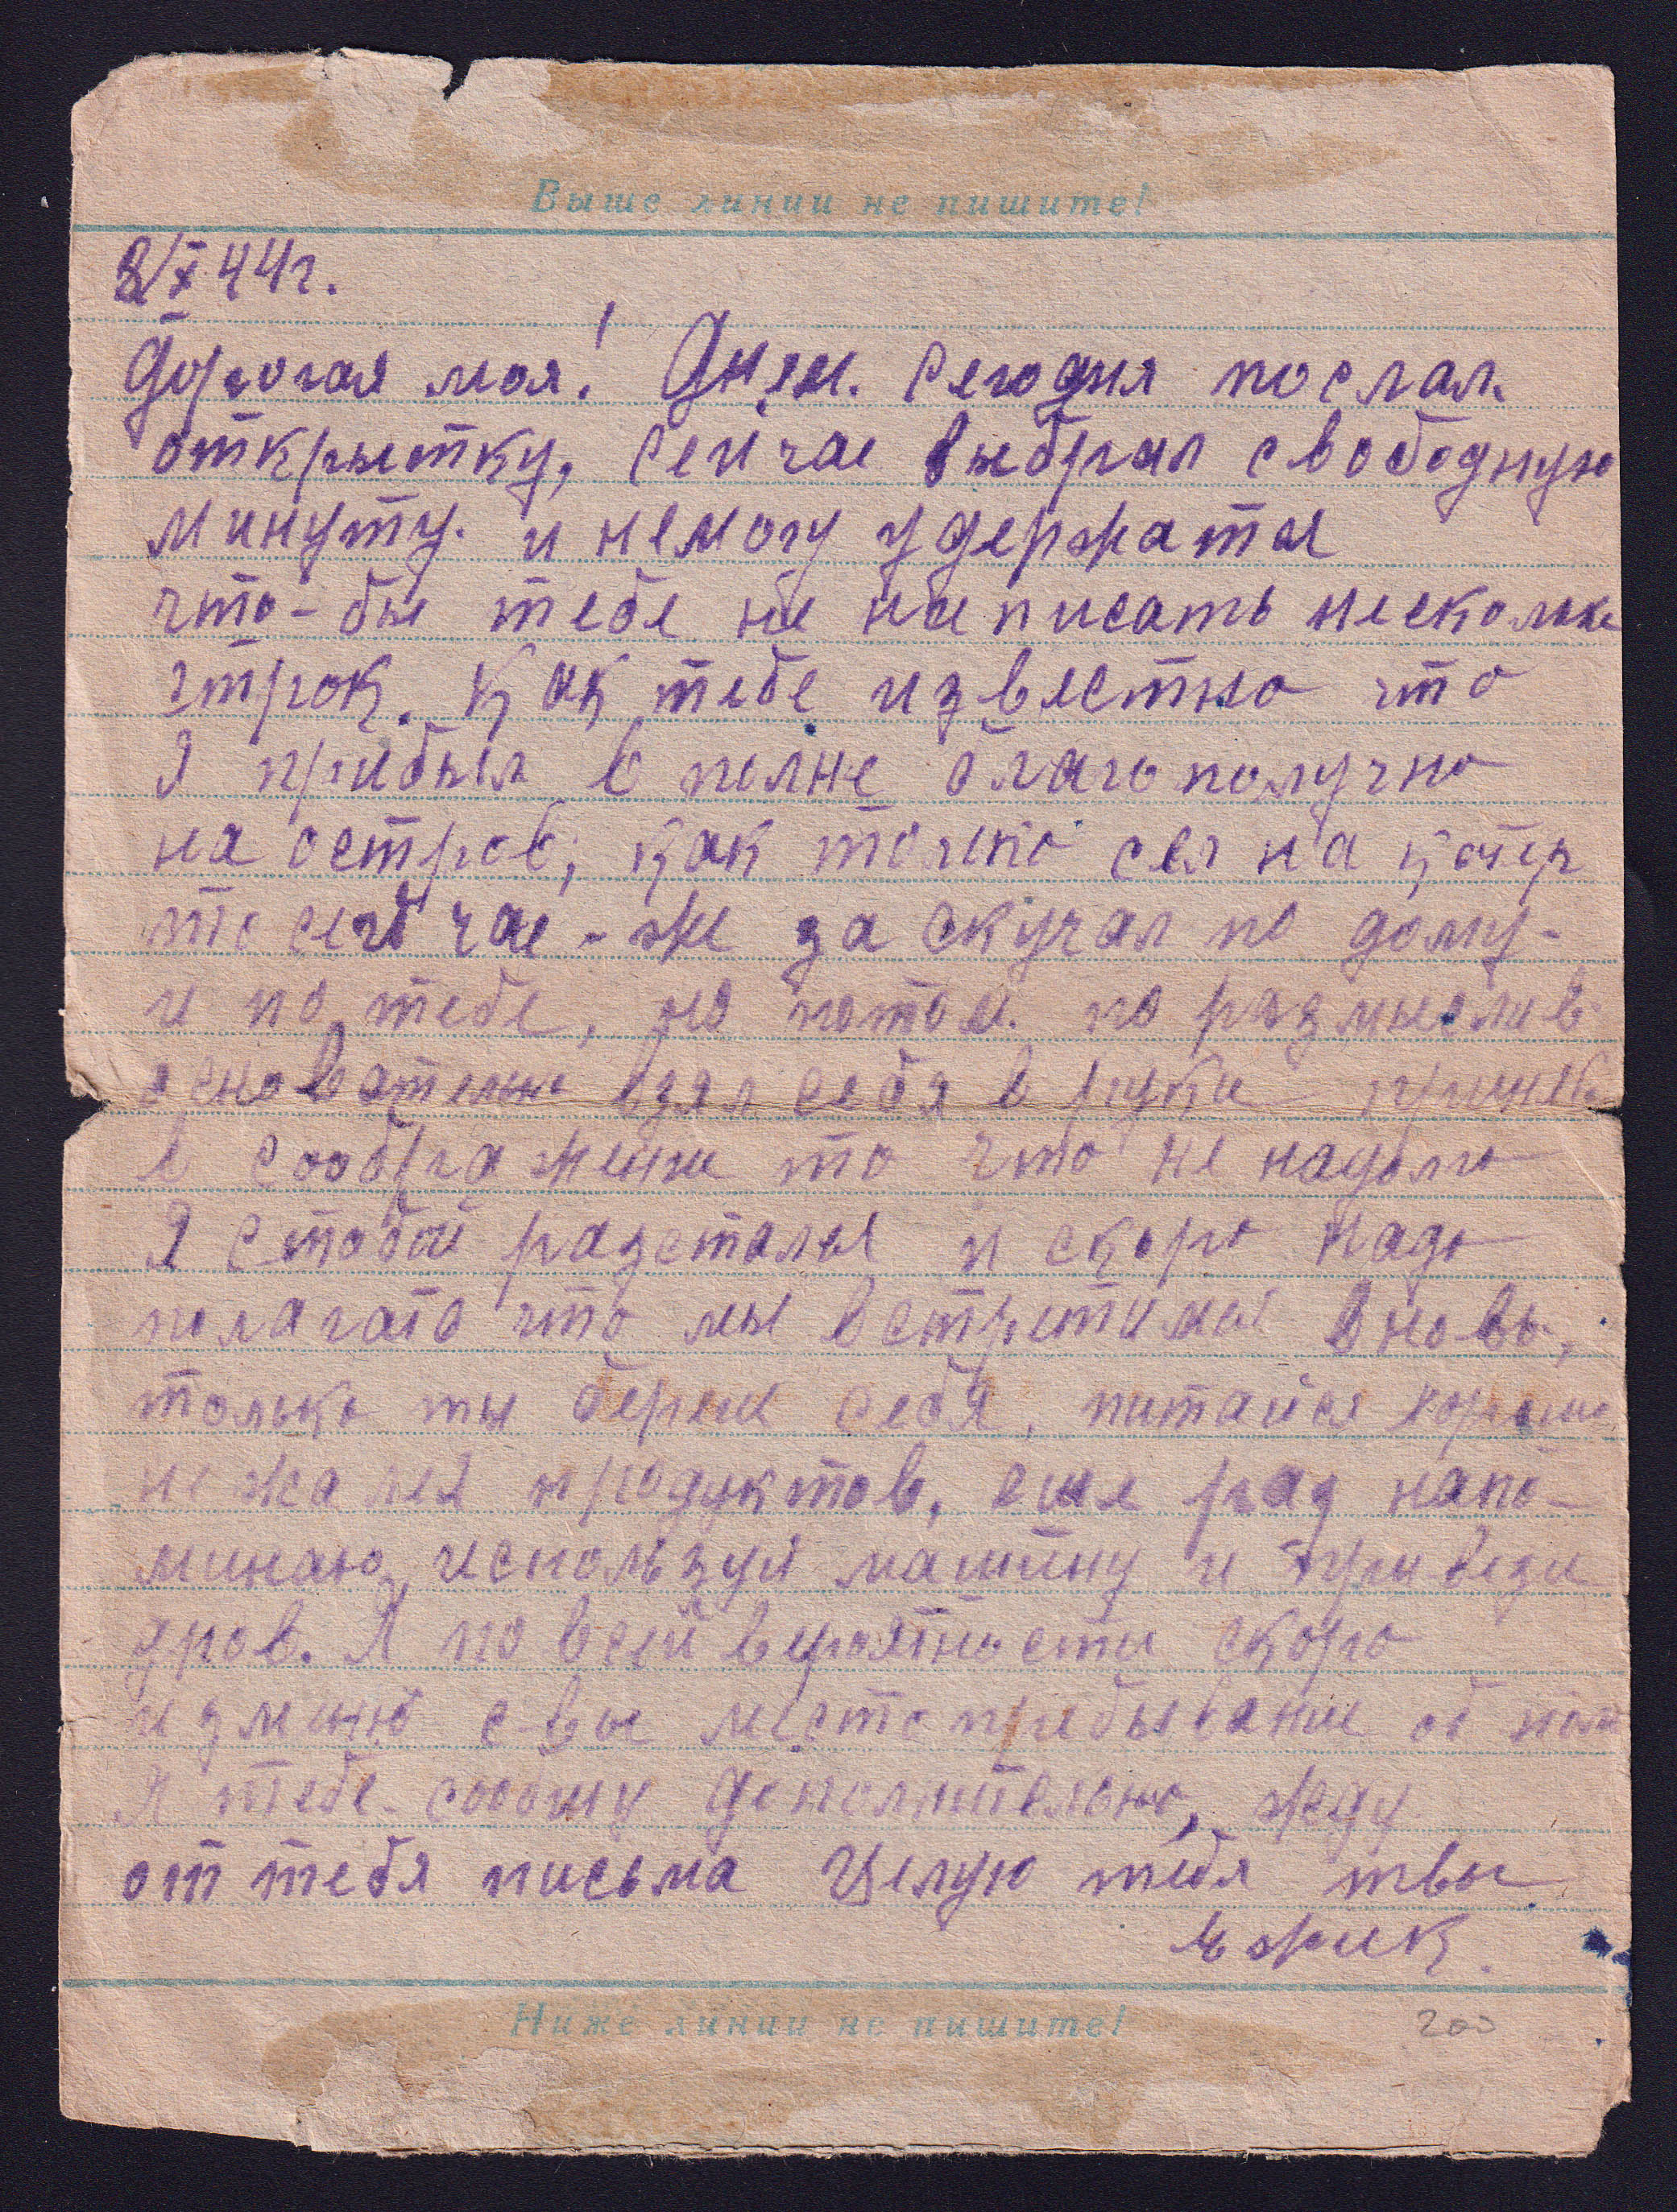 Выше линии не пишите!
8/X 44г.
Дорогая моя! Днем. Сегодня послал
открытку, сейчас выбрал свободную
минуту. и немогу удержаться
что-бы тебе не написать несколько
строк. Как тебе известно что
Я прибыл в полне благополучно
на остров, как только сел на катер
то сейчас-же за скучал по дому-
и по тебе, но потом. по размыслив
основательно взял себя в руки приняв
в соображение то что не надолго
Я с тобой разстался и скоро надо
полагать что мы встретимся вновь,
только ты береги себя, питайся хорошо
не жалея продуктов, еще раз напо-
минаю, используй машину и привези
дров. Я по всей вероятности скоро
изменю свое местопребывание об том
Я тебе сообщу дополнительно, жду
от тебя письма Целую тебя твой
Ежик.
Ниже линии не пишите!
200